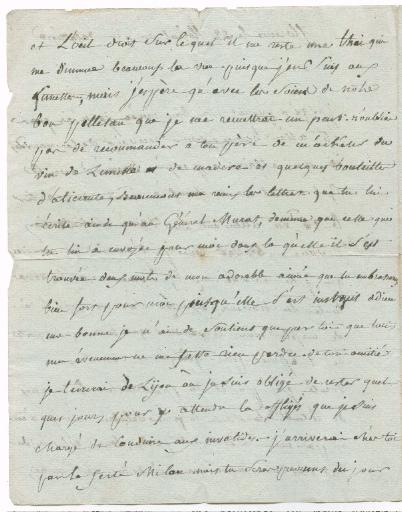 et L'oeil droit sur lequel il me reste une thai qui
me diminue beaucoup la vue puisque j'en suis aux
Lunettes, mais j'espère qu'avec les soins de notre
bon pelletan que je me remettrai un peu. n'oublie
pas de recommander a ton père de m'acheter du
vin de Lunelle et de madere et quelques bouteille
d'alicante, ma les lettres que tu lui
écrite ainsi qu'au Général Murat, de même que celle que
tu lui à envoyée pour moi dans la qu'elle il s'est
trouvée deux mots de mon adorable aimée que tu embrasseras
bien fort pour moi puisqu'elle s'est adieu
ma bonne je n'ai de soutiens que par toi que tous
ma ne me rien perdre de ton amitié
je t'écrirai de Lijon où je suis obligé de rester quel
ques jours pour y attendre la que je suis
chargé de conduire aux invalides. j'arriverai chez toi
par la ferté Milon mais tu seras prevenus du jour